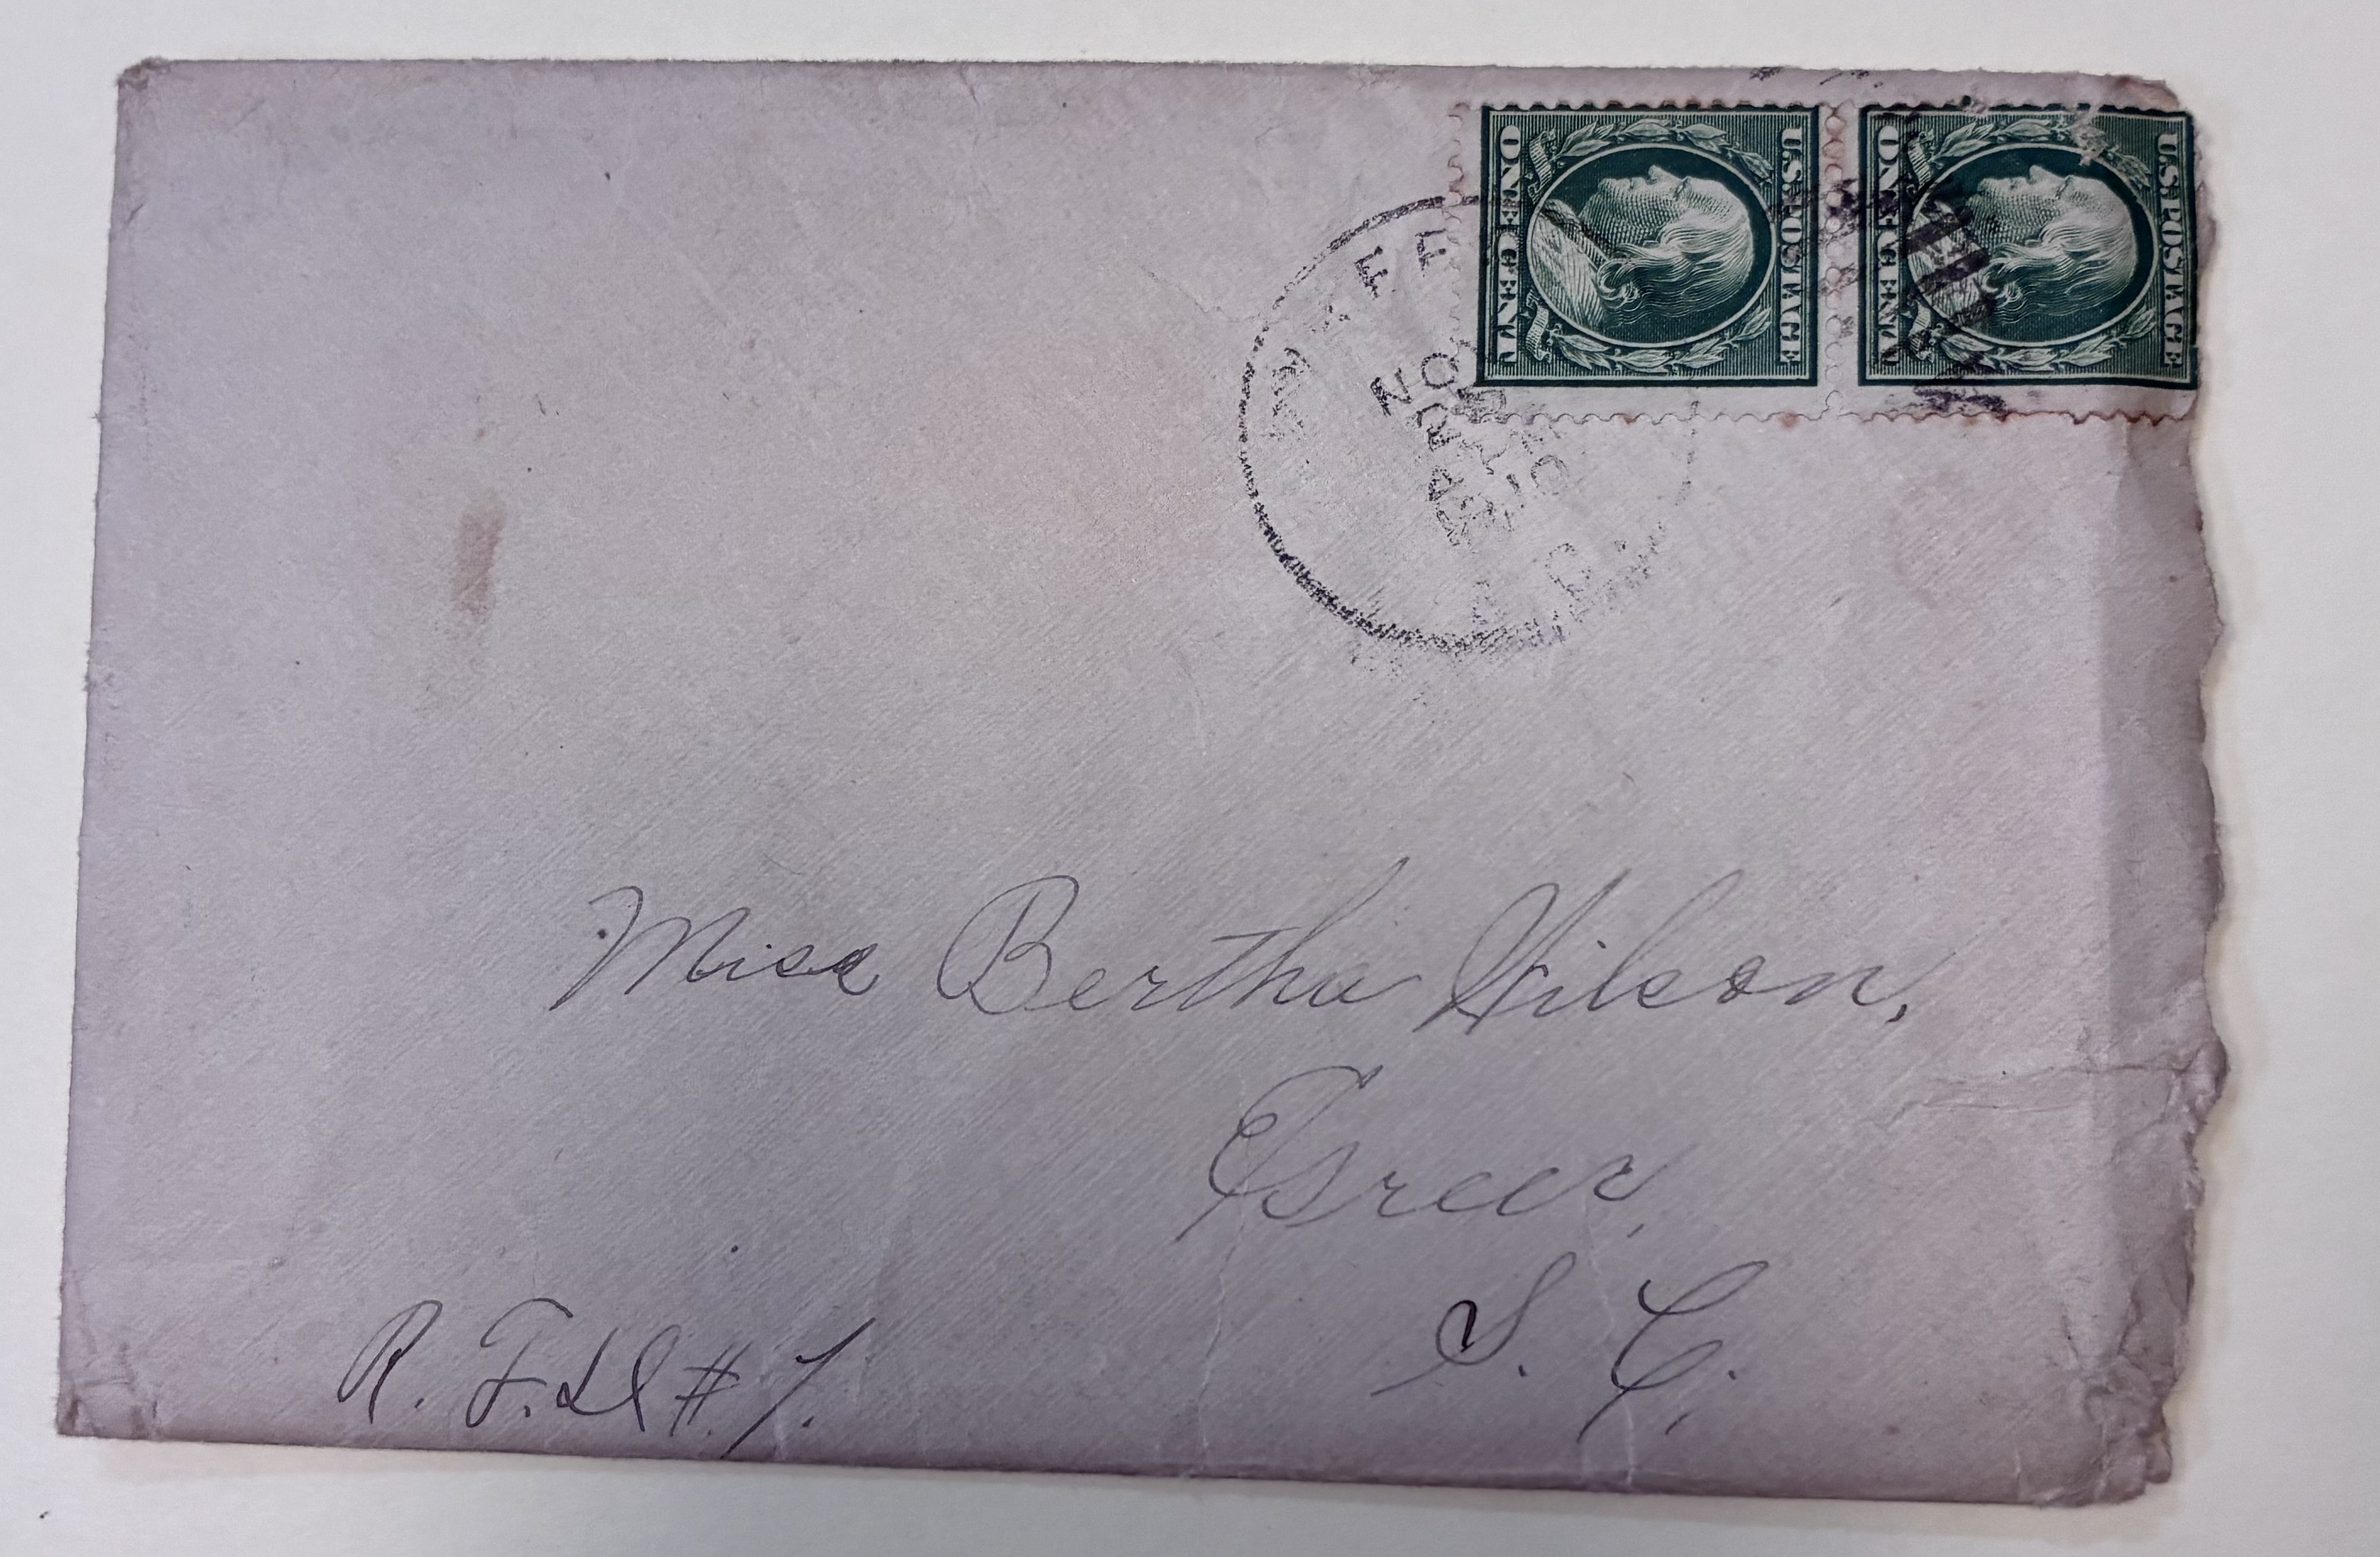 U.S. POSTAGE
ONE CENT
U.S. POSTAGE
ONE CENT
NOV
Miss Bertha Wilson,
Greer,
S. C.
R. F. D # 1.